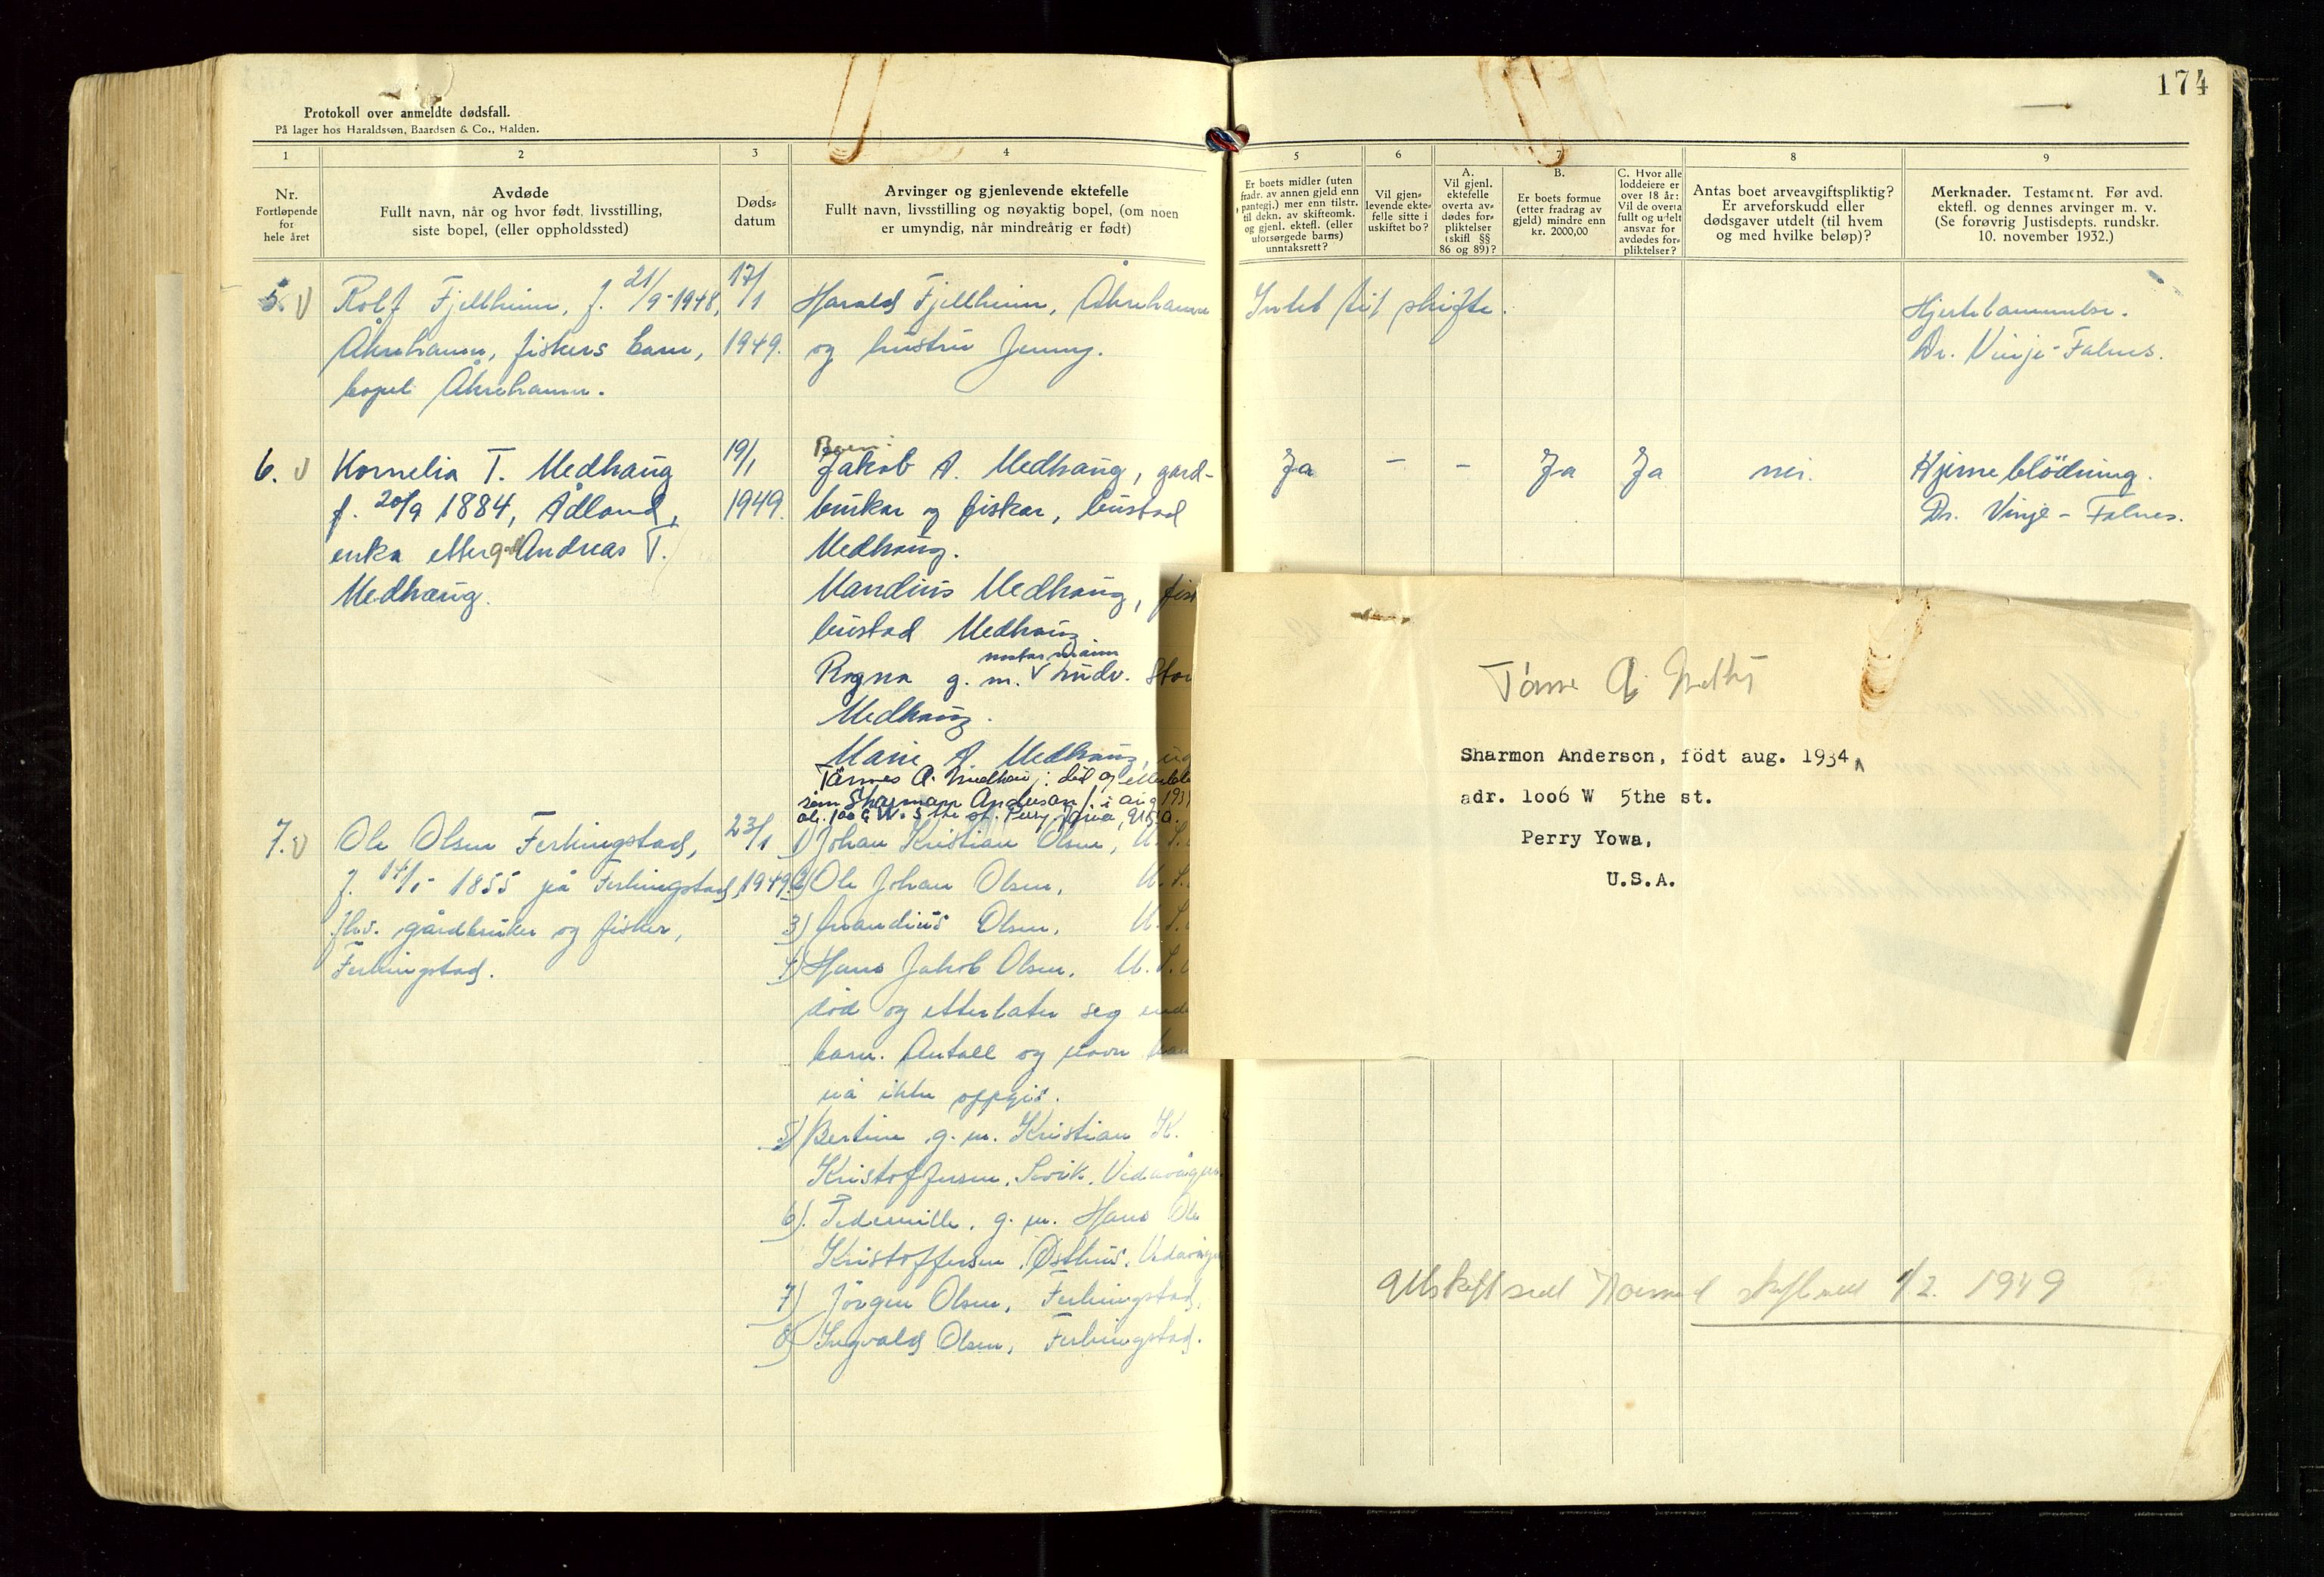 174
Protokoll over anmeldte dødsfall.
På lager hos Haraldssøn, Baardsen & Co., Halden.
1
2
3
4
Nr.
Fortløpende
for
hele året
Avdøde
Fullt navn, når og hvor født, livsstilling,
siste bopel, (eller oppholdssted)
Døds-
datum
Arvinger og gjenlevende ektefelle
Fullt navn, livsstilling og nøyaktig bopel, (om noen
er umyndig, når mindreårig er født)
5. V
Rolf Fjellheim, f. 21/9-1948,
Åkrehamn, fiskers barn,
bopel Åkrehamn.
17/1
1949.
Harald Fjellheim, Åkrehamn
og hustru Jenny.
6. V
Kornelia T. Medhaug
f. 20/9 1884, Ådland,
enka etter Andreas T.
Medhaug.
19/1
1949.
Born:
Jakob A. Medhaug, gard-
brukar og fiskar, bustad
Medhaug.
Mandius Medhaug, fis
bustad Medhaug
Ragna g. m. Ludv.
Medhaug.
Marie A. Medhaug, ug
Tönnes A. Medhaug: död og
som Sharmann Anderson f. i aug 193
ad. 1006 W. 5 the st. Perry Jowa, U.S.A.
7. V
Ole Olsen Ferkingstad,
f. 14/5 1855 på Ferkingstad,
fhv. gårdbruker og fisker,
Ferkingstad.
23/1
1949.
1) Johan Kristian Olsen, U.S.
2) Ole Johan Olsen, U.S.
3) Mandius Olsen, U.S.
4) Hans Jakob Olsen, U.S.
död og etterlater seg
barn. Antall og navn kan
nå ikke oppgis.
5) Bertine g. m. Kristian K.
Kristoffersen, Sevik, Vedavågen
6). Pedernille, g. m. Hans Ole
Kristoffersen, Østhus, Vedavågen
7) Jörgen Olsen, Ferkingstad,
8) Ingvald Olsen, Ferkingstad.
5
6
7
8
9
Er boets midler (uten
fradr. av annen gjeld enn
pantegj.) mer enn tilstr.
til dekn. av skifteomk.
og gjenl. ektefl. (eller
uforsørgede barns)
unntaksrett?
Vil gjen-
levende ekte-
felle sitte i
uskiftet bo?
A.
Vil gjenl.
ektefelle
overta av-
dødes for-
pliktelser
(skifl §§
86 og 89)?
B.
Er boets formue
(etter fradrag av
gjeld) mindre enn
kr. 2000,00
C. Hvor alle
loddeiere er
over 18 år:
Vil de overta
fullt og udelt
ansvar for
avdødes for-
pliktelser?
Antas boet arveavgiftspliktig?
Er arveforskudd eller
dødsgaver utdelt (til hvem
og med hvilke beløp)?
Merknader. Testament. Før avd.
ektefl. og dennes arvinger m. v.
(Se forøvrig Justisdepts. rundskr.
10. november 1932.)
Intet til skifte.
Hjertelammelse.
Dr. Vinje-Falnes.
Ja - - Ja Ja nei.
Hjerneblödning.
Dr. Vinje - Falnes.
Sharmon Anderson, födt aug. 1934
adr. 1oo6 W 5the st.
Perry Yowa,
U.S.A.
1/2. 1949